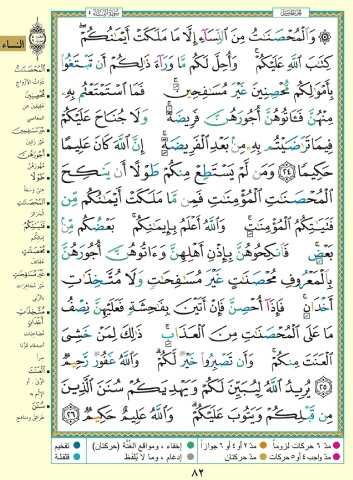 الجزء الخامس
سورة النساء ٤
النساء
وَالْمُحْصَنَاتُ مِنَ النِّسَاءِ إِلَّا مَا مَلَكَتْ أَيْمَانُكُمْ
كِتَابَ اللَّهِ عَلَيْكُمْ وَأُحِلَّ لَكُم مَّا وَرَاءَ ذَٰلِكُمْ أَن تَبْتَغُوا
بِأَمْوَالِكُم مُّحْصِنِينَ غَيْرَ مُسَافِحِينَ فَمَا اسْتَمْتَعْتُم بِهِ
مِنْهُنَّ فَآتُوهُنَّ أُجُورَهُنَّ فَرِيضَةً وَلَا جُنَاحَ عَلَيْكُمْ
فِيمَا تَرَاضَيْتُم بِهِ مِن بَعْدِ الْفَرِيضَةِ إِنَّ اللَّهَ كَانَ عَلِيمًا
حَكِيمًا ٢٤ وَمَن لَّمْ يَسْتَطِعْ مِنكُمْ طَوْلًا أَن يَنكِحَ
الْمُحْصَنَاتِ الْمُؤْمِنَاتِ فَمِن مَّا مَلَكَتْ أَيْمَانُكُم مِّن
فَتَيَاتِكُمُ الْمُؤْمِنَاتِ وَاللَّهُ أَعْلَمُ بِإِيمَانِكُم بَعْضُكُم مِّن
بَعْضٍ فَانكِحُوهُنَّ بِإِذْنِ أَهْلِهِنَّ وَآتُوهُنَّ أُجُورَهُنَّ
بِالْمَعْرُوفِ مُحْصَنَاتٍ غَيْرَ مُسَافِحَاتٍ وَلَا مُتَّخِذَاتِ
أَخْدَانٍ فَإِذَا أُحْصِنَّ فَإِنْ أَتَيْنَ بِفَاحِشَةٍ فَعَلَيْهِنَّ نِصْفُ
مَا عَلَى الْمُحْصَنَاتِ مِنَ الْعَذَابِ ذَٰلِكَ لِمَنْ خَشِيَ
الْعَنَتَ مِنكُمْ وَأَن تَصْبِرُوا خَيْرٌ لَّكُمْ وَاللَّهُ غَفُورٌ رَّحِيمٌ
٢٥ يُرِيدُ اللَّهُ لِيُبَيِّنَ لَكُمْ وَيَهْدِيَكُمْ سُنَنَ الَّذِينَ
مِن قَبْلِكُمْ وَيَتُوبَ عَلَيْكُمْ وَاللَّهُ عَلِيمٌ حَكِيمٌ ٢٦
الْمُحْصَنَاتُ
ذوات الأزواج
مُحْصِنِينَ
عفيفين عن
المعاصي
غَيْرَ مُسَافِحِينَ
غير زانين
أُجُورَهُنَّ
مهورهن
طَوْلًا
غنى وسعة
الْمُحْصَنَاتِ
الحرائر
فَتَيَاتِكُمُ
إمائكم
مُحْصَنَاتٍ
عفائف
غَيْرَ مُسَافِحَاتٍ
غير مجاهرات
بالزنى
مُتَّخِذَاتِ
أَخْدَانٍ
مصاحبات
أصدقاء للزنا
سرا
الْعَنَتَ
الزنى، أو
الإثم به
سُنَنَ
طرائق ومناهج
مدّ ٦ حركات لزوماً مدّ ٢ أو ٤ أو ٦ جوازاً إخفاء، ومواقع الغُنَّة (حركتان) تفخيم
مدّ واجب ٤ أو ٥ حركات مدّ حركتان إدغام، وما لا يُلفَظ قلقلة
٨٢